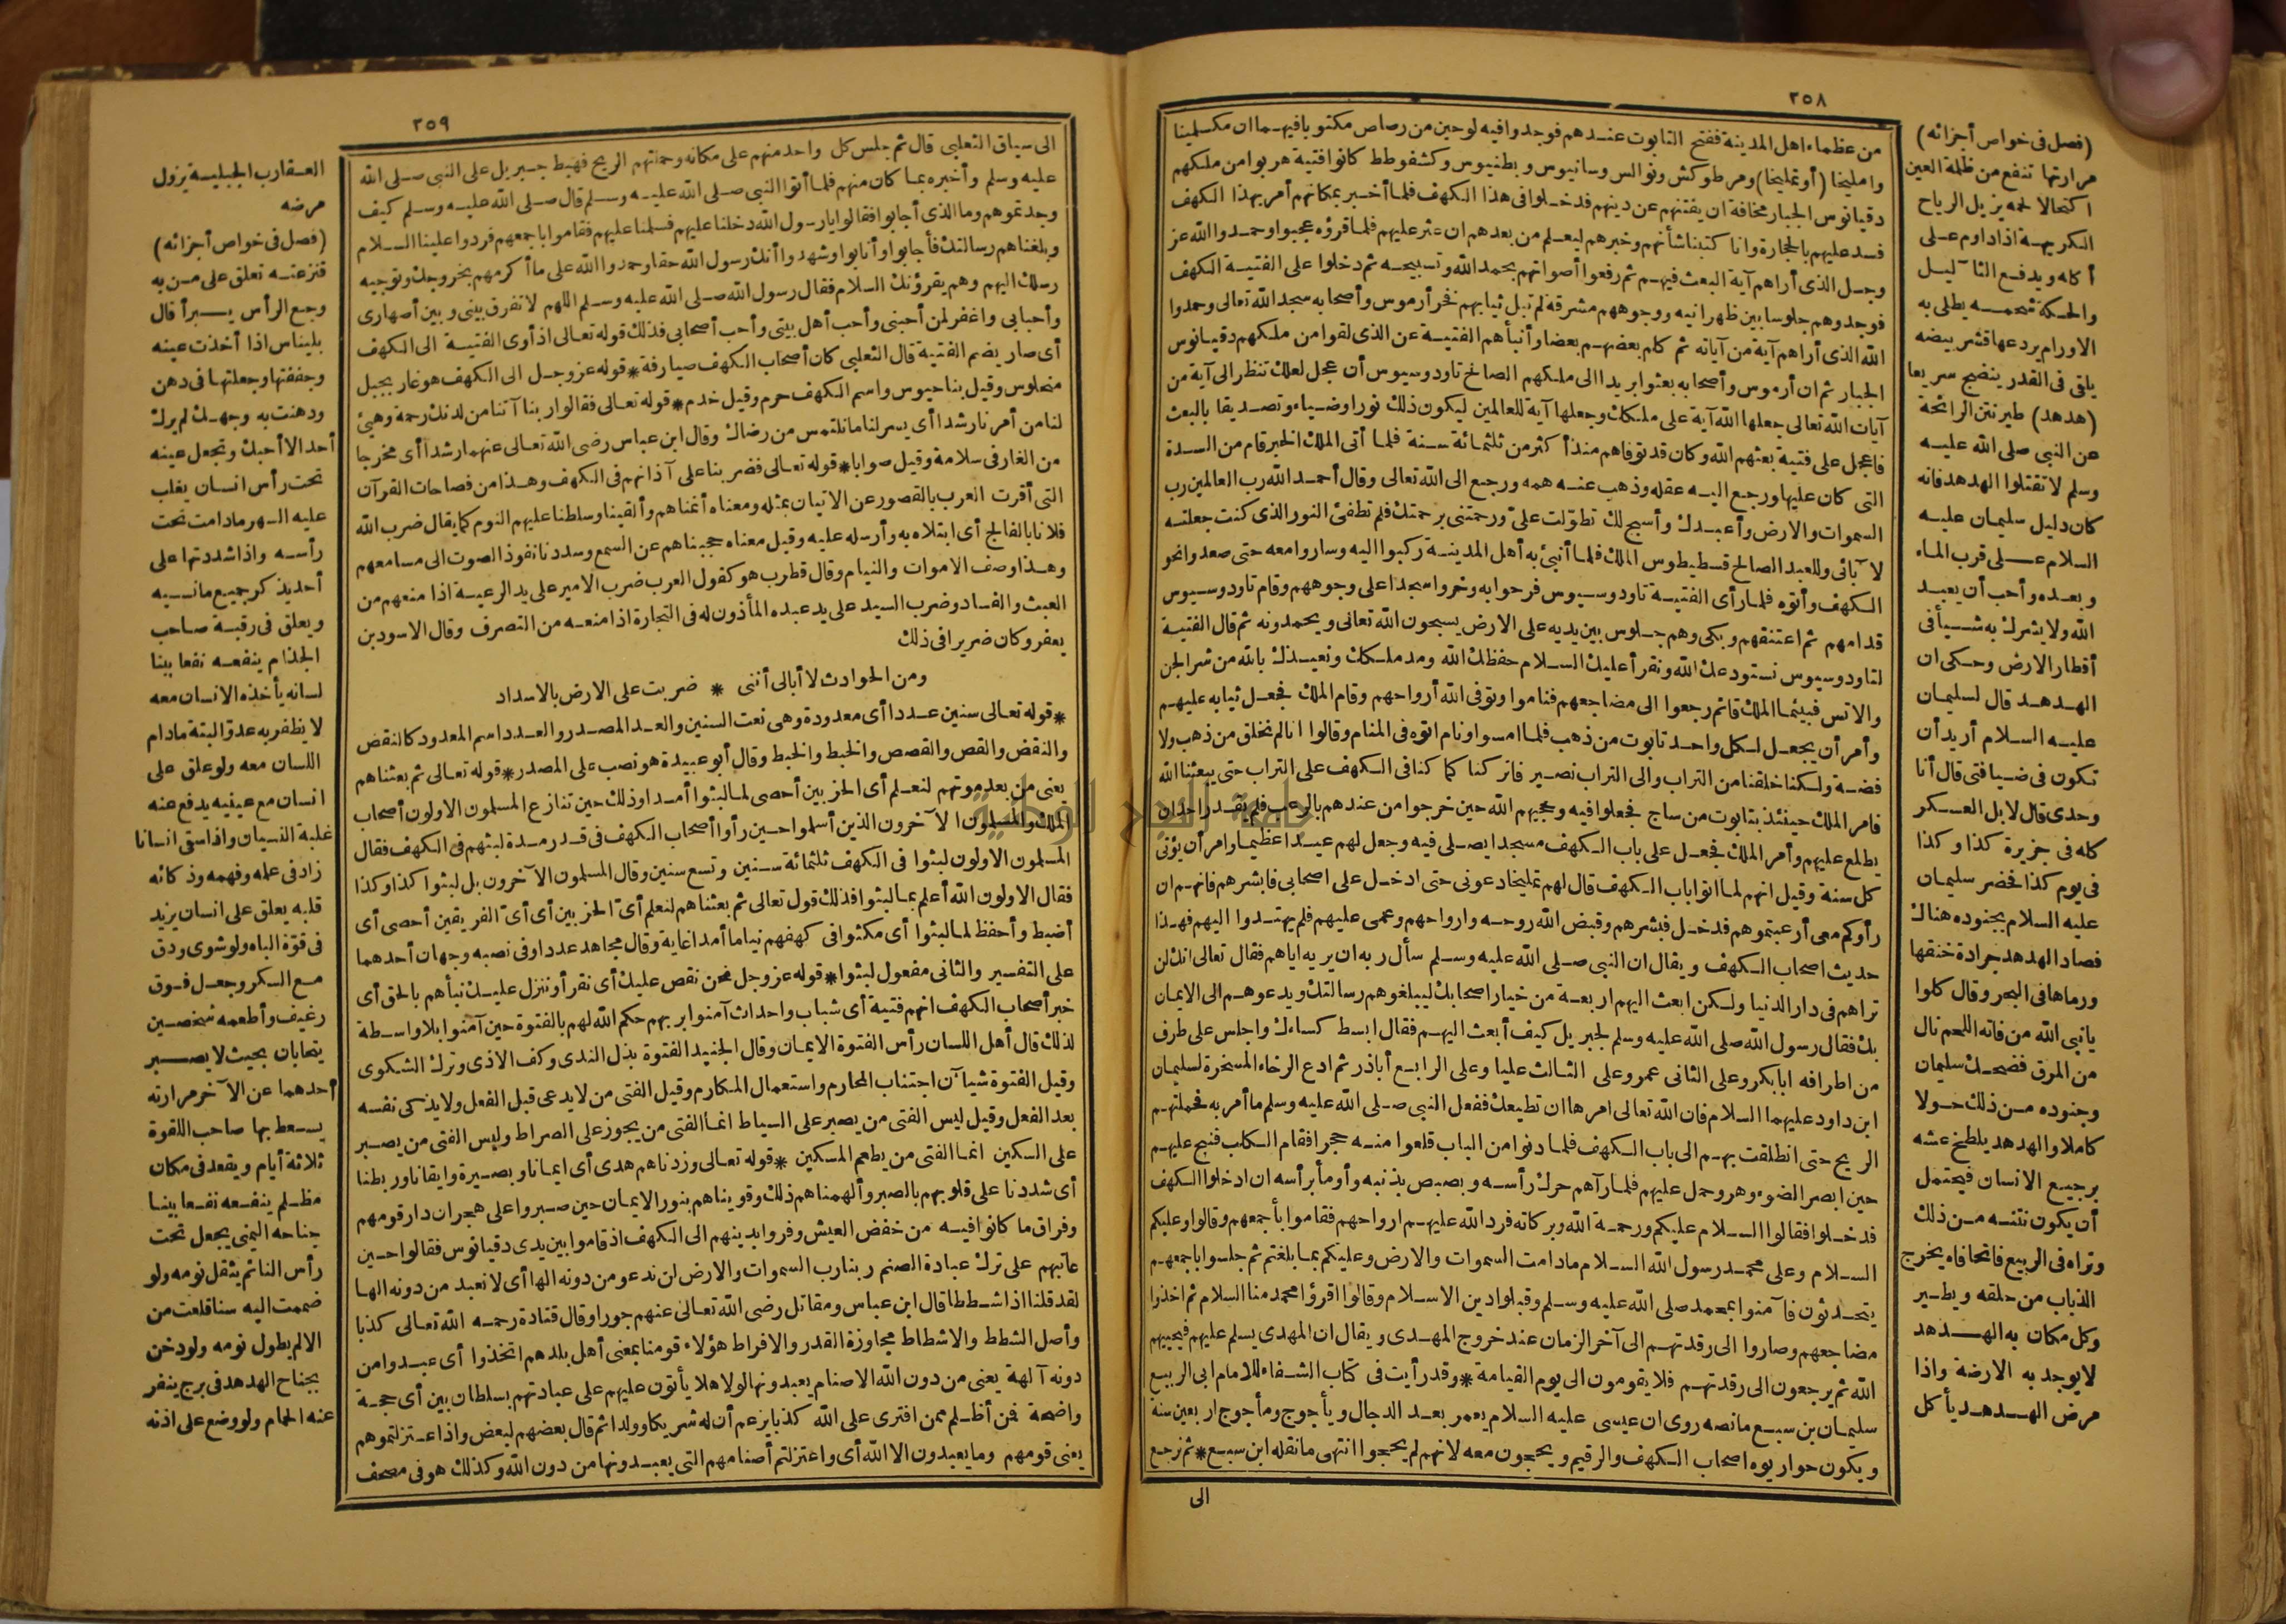 ٢٥٨
من عظماء اهل المدينة ففتح التابوت عندهم فوجدوا فيه لوحين من رصاص مكتوبا فيهما ان مكسلمينا
وامليخا (أو تمليخا) ومرطوكش ونوالس وسانيوس وبطنيوس وكشفوطط كانوا فتية هربوا من ملكهم
دقيانوس الجبار مخافة ان يفتنهم عن دينهم فدخلوا فى هذا الكهف فلما أخبر بمكانهم أمر بهذا الكهف
فسد عليهم بالحجارة وانا كتبنا شأنهم وخبرهم ليعلم من بعدهم ان عثر عليهم فلما قرؤه عجبوا وحمدوا الله عز
وجل الذى أراهم آية البعث فيهم ثم رفعوا أصواتهم بحمد الله وتسبيحه ثم دخلوا على الفتية الكهف
فوجدوهم جلوسا بين ظهرانيه ووجوههم مشرقة لم تبل ثيابهم فخر أرموس وأصحابه سجدا لله تعالى وحمدوا
الله الذى أراهم آية من آياته ثم كلم بعضهم بعضا وأنبأهم الفتية عن الذى لقوا من ملكهم دقيانوس
الجبار ثم ان أرموس وأصحابه بعثوا بريدا الى ملكهم الصالح تاودوسيوس أن عجل لعلك تنظر الى آية من
آيات الله تعالى جعلها الله آية على ملكك وجعلها آية للعالمين ليكون ذلك نورا وضياء وتصديقا بالبعث
فاعجل على فتية بعثهم الله وكان قد توفاهم منذ أكثر من ثلثمائة سنة فلما أتى الملك الخبر قام من السدة
التى كان عليها ورجع اليه عقله وذهب عنه همه ورجع الى الله تعالى وقال أحمد الله رب العالمين رب
السموات والارض وأعبدك وأسبح لك تطولت علىّ ورحمتنى برحمتك فلم تطفئ النور الذى كنت جعلته
لآبائى وللعبد الصالح قسطيطوس الملك فلما أنبئ به أهل المدينة ركبوا اليه وساروا معه حتى صعدوا نحو
الكهف وأتوه فلما رأى الفتية تاودوسيوس فرحوا به وخروا سجدا على وجوههم وقام تاودوسيوس
قدامهم ثم اعتنقهم وبكى وهم جلوس بين يديه على الارض يسبحون الله تعالى ويحمدونه ثم قال الفتية
لتاودوسيوس نستودعك الله ونقرأ عليك السلام حفظك الله ومد ملكك ونعيذك بالله من شر الجن
والانس فبينما الملك قائم رجعوا الى مضاجعهم فناموا وتوفى الله أرواحهم وقام الملك فجعل ثيابه عليهم
وأمر أن يجعل لكل واحد تابوت من ذهب فلما امسوا ونام اتوه فى المنام وقالوا انا لم نخلق من ذهب ولا
فضة ولكنا خلقنا من التراب والى التراب نصير فاتركنا كما كنا فى الكهف على التراب حتى يبعثنا الله
فامر الملك حينئذ بتابوت من ساج فجعلوا فيه وحجبهم الله حين خرجوا من عندهم بالرعب فلم يقدر احد ان
يطلع عليهم وأمر الملك فجعل على باب الكهف مسجدا يصلى فيه وجعل لهم عيدا عظيما وامر أن يؤتى
كل سنة وقيل انهم لما اتوا باب الكهف قال لهم تمليخا دعونى حتى ادخل على اصحابى فابشرهم فانهم ان
رأوكم معى أرعبتموهم فدخل فبشرهم وقبض الله روحه وارواحهم وعمى عليهم فلم يهتدوا اليهم فهذا
حديث اصحاب الكهف ويقال ان النبى صلى الله عليه وسلم سأل ربه ان يريه اياهم فقال تعالى انك لن
تراهم فى دار الدنيا ولكن ابعث اليهم اربعة من خيار اصحابك ليبلغوهم رسالتك ويدعوهم الى الايمان
بك فقال رسول الله صلى الله عليه وسلم لجبريل كيف أبعث اليهم فقال ابسط كساءك واجلس على طرف
من اطرافه ابا بكر وعلى الثانى عمر وعلى الثالث عليا وعلى الرابع أباذر ثم ادع الرخاء المسخرة لسليمان
ابن داود عليهما السلام فان الله تعالى امرها ان تطيعك ففعل النبى صلى الله عليه وسلم ما أمر به فحملتهم
الريح حتى انطلقت بهم الى باب الكهف فلما دنوا من الباب قلعوا منه حجرا فقام الكلب فنبح عليهم
حين ابصر الضوء وهر وحمل عليهم فلما رآهم حرك رأسه وبصبص بذنبه وأومأ برأسه ان ادخلوا الكهف
فدخلوا فقالوا السلام عليكم ورحمة الله وبركاته فرد الله عليهم ارواحهم فقاموا بأجمعهم وقالوا وعليكم
السلام وعلى محمد رسول الله السلام مادامت السموات والارض وعليكم بما بلغتم ثم جلسوا باجمعهم
يتحدثون فآمنوا بمحمد صلى الله عليه وسلم وقبلوا دين الاسلام وقالوا اقرؤا محمدا منا السلام ثم اخذوا
مضاجعهم وصاروا الى رقدتهم الى آخر الزمان عند خروج المهدى ويقال ان المهدى يسلم عليهم فيحييهم
الله ثم يرجعون الى رقدتهم فلا يقومون الى يوم القيامة * وقد رأيت فى كتاب الشفاء للامام ابى الربيع
سليمان بن سبع ما نصه روى ان عيسى عليه السلام يعمر بعد الدجال ويأجوج ومأجوج اربعين سنة
ويكون حواريوه اصحاب الكهف والرقيم ويحجون معه لانهم لم يحجوا انتهى ما نقله ابن سبع * ثم نرجع
الى
(فصل فى خواص أجزائه)
مرارتها تنفع من ظلمة العين
اكتحالا لحمه يزيل الرياح
الكريهة اذا داوم على
أكله ويدفع الثآليل
والحكة شحمه يطلى به
الاورام يردعها قشر بيضه
يلقى فى القدر ينضج سريعا
(هدهد) طير نتن الرائحة
عن النبى صلى الله عليه
وسلم لا تقتلوا الهدهد فانه
كان دليل سليمان عليه
السلام على قرب الماء
وبعده وأحب أن يعبد
الله ولا يشرك به شيأ فى
أقطار الارض وحكى ان
الهدهد قال لسليمان
عليه السلام أريد أن
تكون فى ضيافتى قال أنا
وحدى قال لا بل العسكر
كله فى جزيرة كذا وكذا
فى يوم كذا فحضر سليمان
عليه السلام بجنوده هناك
فصاد الهدهد جرادة خنقها
ورماها فى البحر وقال كلوا
يا نبى الله من فاته اللحم نال
من المرق فضحك سليمان
وجنوده من ذلك حولا
كاملا والهدهد يلطخ عشه
برجيع الانسان فيحتمل
أن يكون نتنه من ذلك
وتراه فى الربيع فاتحا فاه يخرج
الذباب من حلقه ويطير
وكل مكان به الهدهد
لا يوجد به الارضة واذا
مرض الهدهد يأكل
٢٥٩
الى سياق الثعلبى قال ثم جلس كل واحد منهم على مكانه وحملتهم الريح فهبط جبريل على النبى صلى الله
عليه وسلم وأخبره بما كان منهم فلما أتوا النبى صلى الله عليه وسلم قال صلى الله عليه وسلم كيف
وجدتموهم وما الذى أجابوا فقالوا يا رسول الله دخلنا عليهم فسلمنا عليهم فقاموا باجمعهم فردوا علينا السلام
وبلغناهم رسالتك فأجابوا وأنابوا وشهدوا أنك رسول الله حقا وحمدوا الله على ما أكرمهم بخروجك وتوجيه
رسلك اليهم وهم يقرؤنك السلام فقال رسول الله صلى الله عليه وسلم اللهم لا تفرق بينى وبين أصهارى
وأحبابى واغفر لمن أحبنى وأحب أهل بيتى وأحب أصحابى فذلك قوله تعالى اذ أوى الفتية الى الكهف
أى صار يضم الفتية قال الثعلبى كان أصحاب الكهف صيارفة * قوله عز وجل الى الكهف هو غار بجبل
منحلوس وقيل بناحيوس واسم الكهف حرم وقيل خدم * قوله تعالى فقالوا ربنا آتنا من لدنك رحمة وهيئ
لنا من أمرنا رشدا أى يسر لنا ما نلتمس من رضاك وقال ابن عباس رضى الله تعالى عنهما رشدا أى مخرجا
من الغار فى سلامة وقيل صوابا * قوله تعالى فضربنا على آذانهم فى الكهف وهذا من فصاحات القرآن
التى أقرت العرب بالقصور عن الاتيان بمثله ومعناه أنمناهم وألقينا وسلطنا عليهم النوم كما يقال ضرب الله
فلانا بالفالج أى ابتلاه به وأرسله عليه وقيل معناه حجبناهم عن السمع وسددنا نفوذ الصوت الى مسامعهم
وهذا وصف الاموات والنيام وقال قطرب هو كقول العرب ضرب الامير على يد الرعية اذا منعهم من
العبث والفساد وضرب السيد على يد عبده المأذون له فى التجارة اذا منعه من التصرف وقال الاسود بن
يعفر وكان ضريرا فى ذلك
ومن الحوادث لا أبالى أننى * ضربت على الارض بالاسداد
* قوله تعالى سنين عددا أى معدودة وهى نعت السنين والعد المصدر والعدد اسم المعدود كالنقض
والنقض والقص والقصص والخبط والخبط وقال أبو عبيدة هو نصب على المصدر * قوله تعالى ثم بعثناهم
يعنى من بعد موتهم لنعلم أى الحزبين أحصى لما لبثوا أمدا وذلك حين تنازع المسلمون الاولون أصحاب
الملك والمسلمون الآخرون الذين أسلموا حين رأوا أصحاب الكهف فى قدر مدة لبثهم فى الكهف فقال
المسلمون الاولون لبثوا فى الكهف ثلثمائة سنين وتسع سنين وقال المسلمون الآخرون بل لبثوا كذا وكذا
فقال الاولون الله أعلم بما لبثوا فذلك قول تعالى ثم بعثناهم لنعلم أىّ الحزبين أى أىّ الفريقين أحصى أى
أضبط وأحفظ لما لبثوا أى مكثوا فى كهفهم نياما أمدا غاية وقال مجاهد عددا وفى نصبه وجهان أحدهما
على التفسير والثانى مفعول لبثوا * قوله عز وجل نحن نقص عليك أى نقرأ وننزل عليك نبأهم بالحق أى
خبر أصحاب الكهف انهم فتية أى شباب واحداث آمنوا بربهم حكم الله لهم بالفتوة حين آمنوا بلا واسطة
لذلك قال أهل اللسان رأس الفتوة الايمان وقال الجنيد الفتوة بذل الندى وكف الاذى وترك الشكوى
وقيل الفتوة شيآن اجتناب المحارم واستعمال المكارم وقيل الفتى من لا يدعى قبل الفعل ولا يذكى نفسه
بعد الفعل وقيل ليس الفتى من يصبر على السياط انما الفتى من يجوز على الصراط وليس الفتى من يصبر
على السكين انما الفتى من يطعم المسكين * قوله تعالى وزدناهم هدى أى ايمانا وبصيرة وايقانا وربطنا
أى شددنا على قلوبهم بالصبر وألهمناهم ذلك وقويناهم بنور الايمان حين صبروا على هجران دار قومهم
وفراق ما كانوا فيه من خفض العيش وفروا بدينهم الى الكهف اذ قاموا بين يدى دقيانوس فقالوا حين
عاتبهم على ترك عبادة الصنم ربنا رب السموات والارض لن ندعو من دونه الها أى لا نعبد من دونه الها
لقد قلنا اذا شططا قال ابن عباس ومقاتل رضى الله تعالى عنهم جورا وقال قتادة رحمه الله تعالى كذبا
وأصل الشطط والاشطاط مجاوزة القدر والافراط هؤلاء قومنا بمعنى أهل بلدهم اتخذوا أى عبدوا من
دونه آلهة يعنى من دون الله الاصنام يعبدونها لولا هلا يأتون عليهم على عبادتهم بسلطان بين أى حجة
واضحة فمن أظلم ممن افترى على الله كذبا يزعم أن له شريكا وولدا ثم قال بعضهم لبعض واذ اعتزلتموهم
يعنى قومهم وما يعبدون الا الله أى واعتزلتم أصنامهم التى يعبدونها من دون الله وكذلك هو فى مصحف
العقارب الجبلية يزول
مرضه
(فصل فى خواص أجزائه)
قنزعته تعلق على من به
وجع الرأس يبرأ قال
بليناس اذا أخذت عينه
وجففتها وجعلتها فى دهن
ودهنت به وجهك لم يرك
أحد الا أحبك وتجعل عينه
تحت رأس انسان يغلب
عليه السهر مادامت تحت
رأسه واذا شددتها على
أحد يذكر جميع ما نسيه
ويعلق فى رقبة صاحب
الجذام ينفعه نفعا بينا
لسانه يأخذه الانسان معه
لا يظفر به عدو البتة مادام
اللسان معه ولو علق على
انسان مع عينيه يدفع عنه
غلبة النسيان واذا سقى انسانا
زاد فى علمه وفهمه وذكائه
قلبه يعلق على انسان يزيد
فى قوة الباه ولو شوى ودق
مع السكر وجعل فوق
رغيف وأطعمه شخصين
يتحابان بحيث لا يصبر
أحدهما عن الآخر مرارته
يسعط بها صاحب اللقوة
ثلاثة أيام ويقعد فى مكان
مظلم ينفعه نفعا بينا
جناحه اليمنى يجعل تحت
رأس النائم يثقل نومه ولو
ضممت اليه سنا قلعت من
الالم يطول نومه ولو دخن
بجناح الهدهد فى برج ينفر
عنه الحمام ولو وضع على اذنه
جامعة النجاح الوطنية